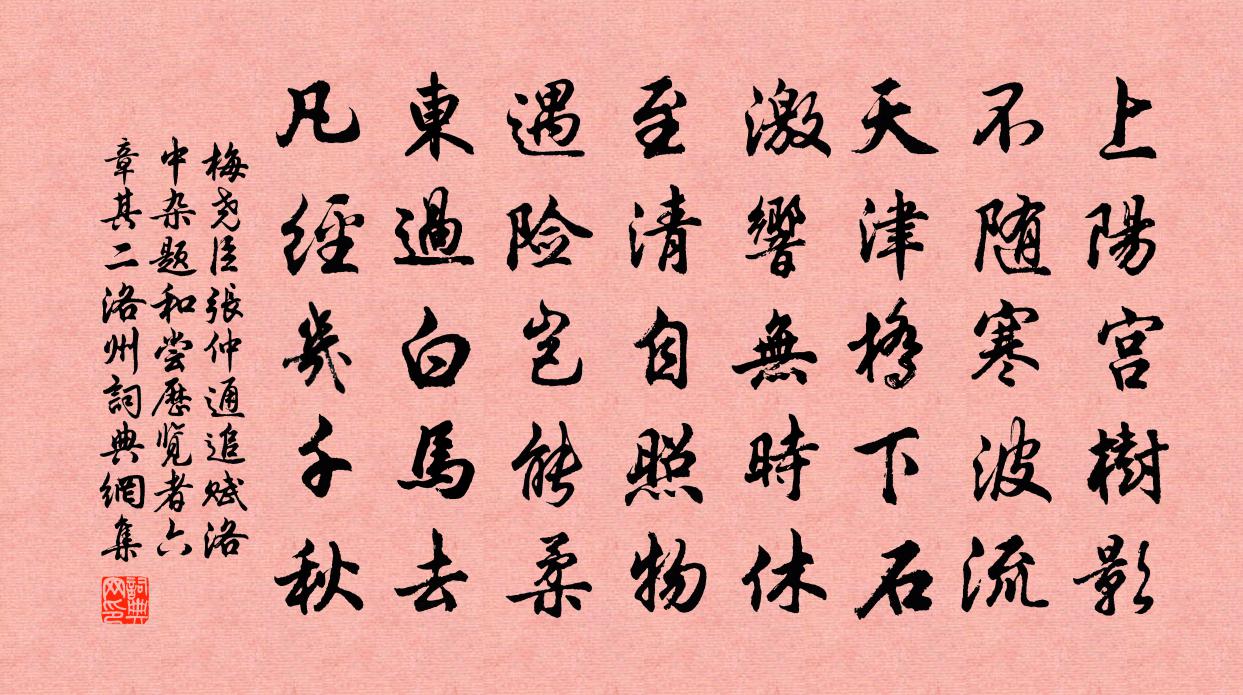 上陽宫樹影
不随寒波流
天津橋下石
激響無時休
至清自照物
遇险岂能柔
東過白馬去
凡經幾千秋
梅尧臣張仲通追赋洛
中杂题和尝歷览者六
章其二洛州詞典網集
詞典网印